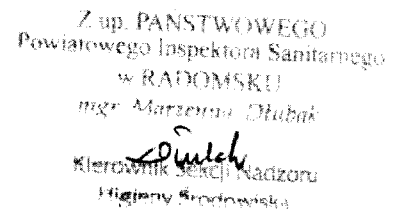 Z up. PAŃSTWOWEGO
Powiatowego Inspektora Sanitarnego
w RADOMSKU
mgr Marzenna Dłubak
Kierownik Sekcji Nadzoru
Higieny Środowiska